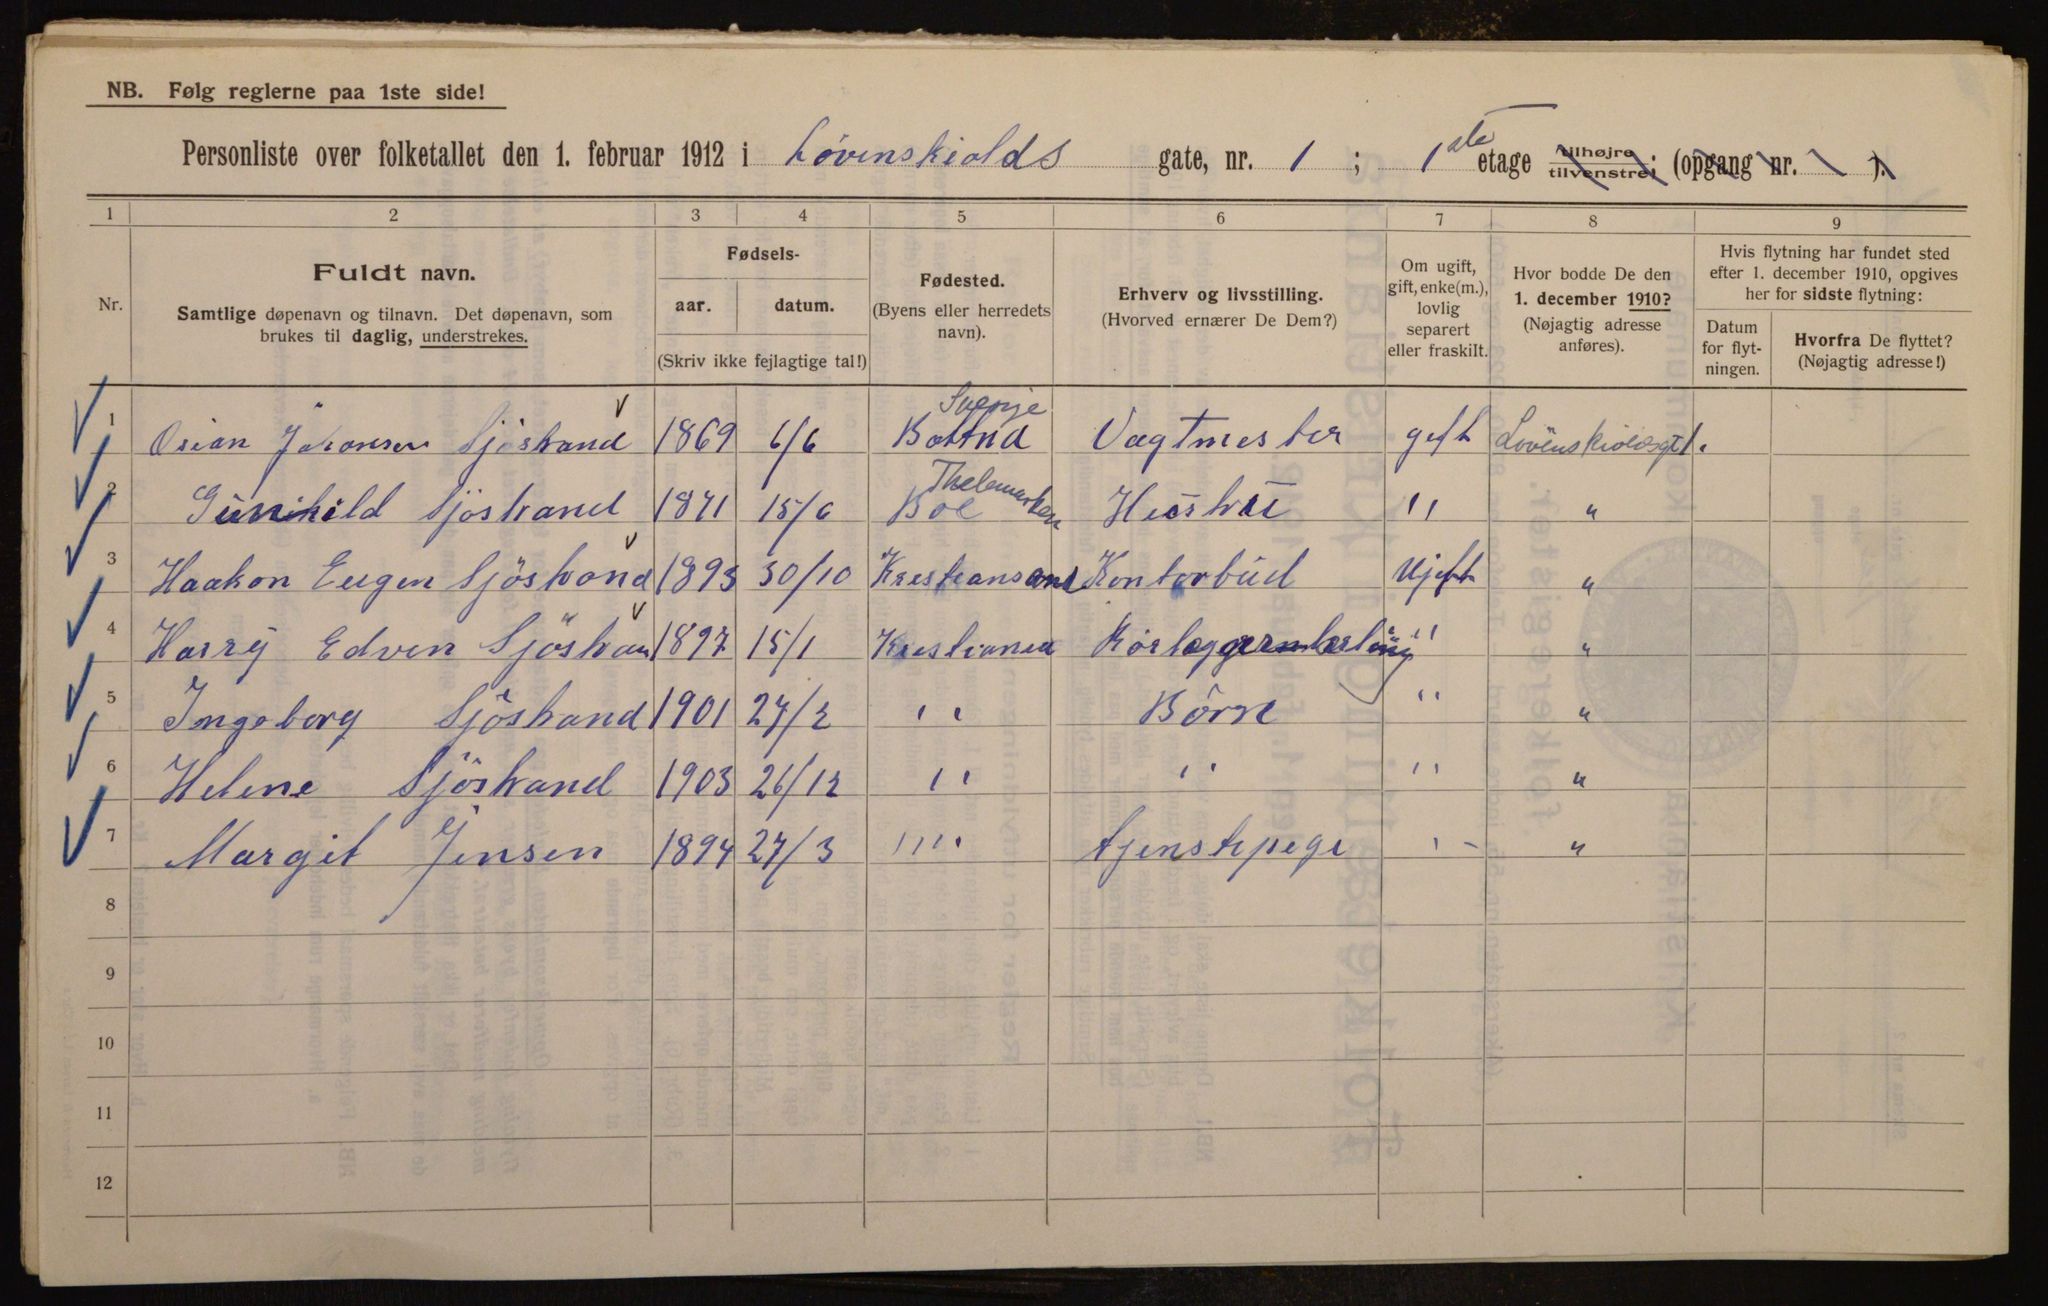 NB. Følg reglerne paa 1ste side!
Personliste over folketallet den 1. februar 1912 i Lövenskiolds gate, nr. 1 ; 1ste etage tilhøjre tilvenstre; (opgang nr. ).
1 2 3 4 5 6 7 8 9
Nr.
Fuldt navn.
Samtlige døpenavn og tilnavn. Det døpenavn, som
brukes til daglig, understrekes.
Fødsels-
aar. datum.
(Skriv ikke fejlagtige tal!)
Fødested.
(Byens eller herredets
navn).
Erhverv og livsstilling.
(Hvorved ernærer De Dem?)
Om ugift,
gift, enke(m.),
lovlig
separert
eller fraskilt.
Hvor bodde De den
1. december 1910?
(Nøjagtig adresse
anføres).
Hvis flytning har fundet sted
efter 1. december 1910, opgives
her for sidste flytning:
Datum
for flyt-
ningen.
Hvorfra De flyttet?
(Nøjagtig adresse!)
1 Johansen Sjöstrand 1869 6/6 Sverige Vagtmester gift Lövenskioldsgt 1.
2 Gunhild Sjöstrand 1871 15/6 Boe Thelemarken Hustru " "
3 Haakon Eugen Sjöstrand 1893 30/10 Kristiansand Kontorbud Ugift "
4 Harry Edvin Sjöstran 1897 15/1 Kristiania Rörlæggerlærling " "
5 Ingeborg Sjöstrand 1901 27/2 " Börn " "
6 Helene Sjöstrand 1903 26/12 " " " "
7 Margit Jensen 1894 27/3 " " tjenstepige " - "
8
9
10
11
12